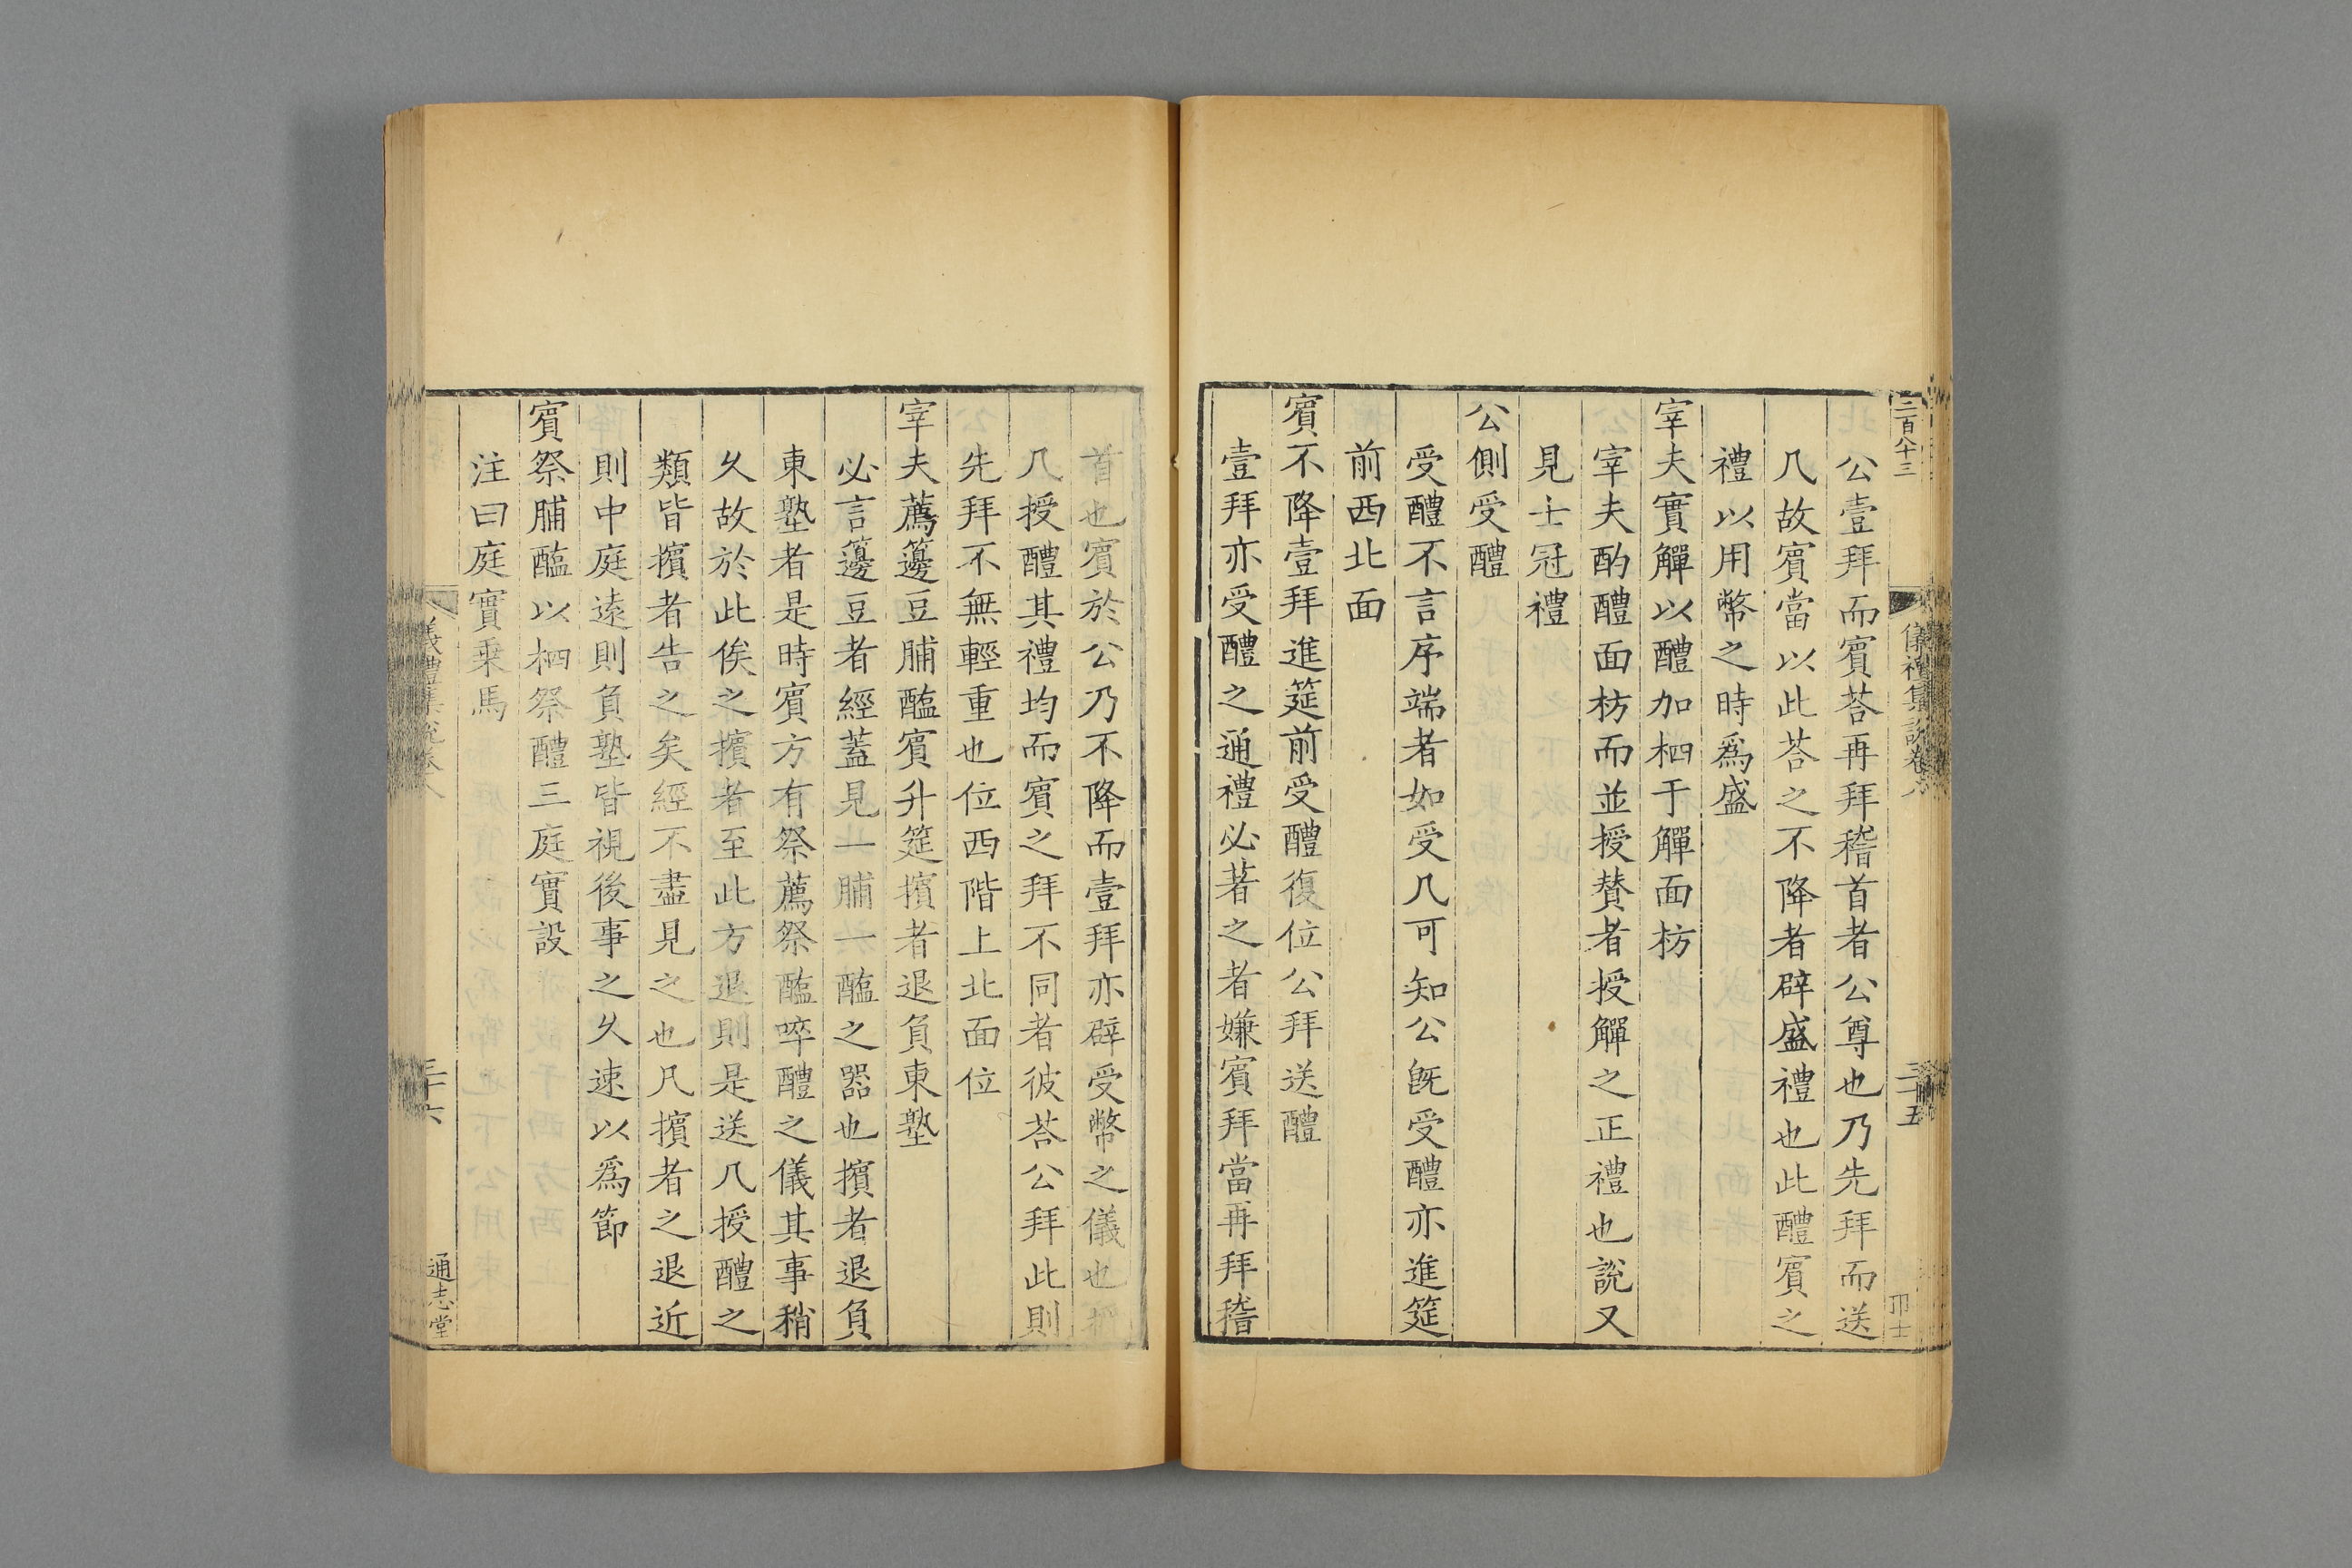 二百八十三
儀禮集說卷八
三十五
公壹拜而賓荅再拜稽首者公尊也乃先拜而送
几故賓當以此荅之不降者辟盛禮也此醴賓之
禮以用幣之時爲盛
宰夫實觶以醴加柶于觶面枋
宰夫酌醴面枋而並授賛者授觶之正禮也說又
見士冠禮
公側受醴
受醴不言序端者如受几可知公旣受醴亦進筵
前西北面
賓不降壹拜進筵前受醴復位公拜送醴
壹拜亦受醴之通禮必著之者嫌賓拜當再拜稽
首也賓於公乃不降而壹拜亦辟受幣之儀也授
几授醴其禮均而賓之拜不同者彼荅公拜此則
先拜不無輕重也位西階上北面位
宰夫薦籩豆脯醢賓升筵擯者退負東塾
必言籩豆者經蓋見一脯一醢之器也擯者退負
東塾者是時賓方有祭薦祭醢啐醴之儀其事稍
久故於此俟之擯者至此方退則是送几授醴之
類皆擯者告之矣經不盡見之也凡擯者之退近
則中庭遠則負塾皆視後事之久速以爲節
賓祭脯醢以柶祭醴三庭實設
注曰庭實乗馬
儀禮集說卷八
三十六
通志堂